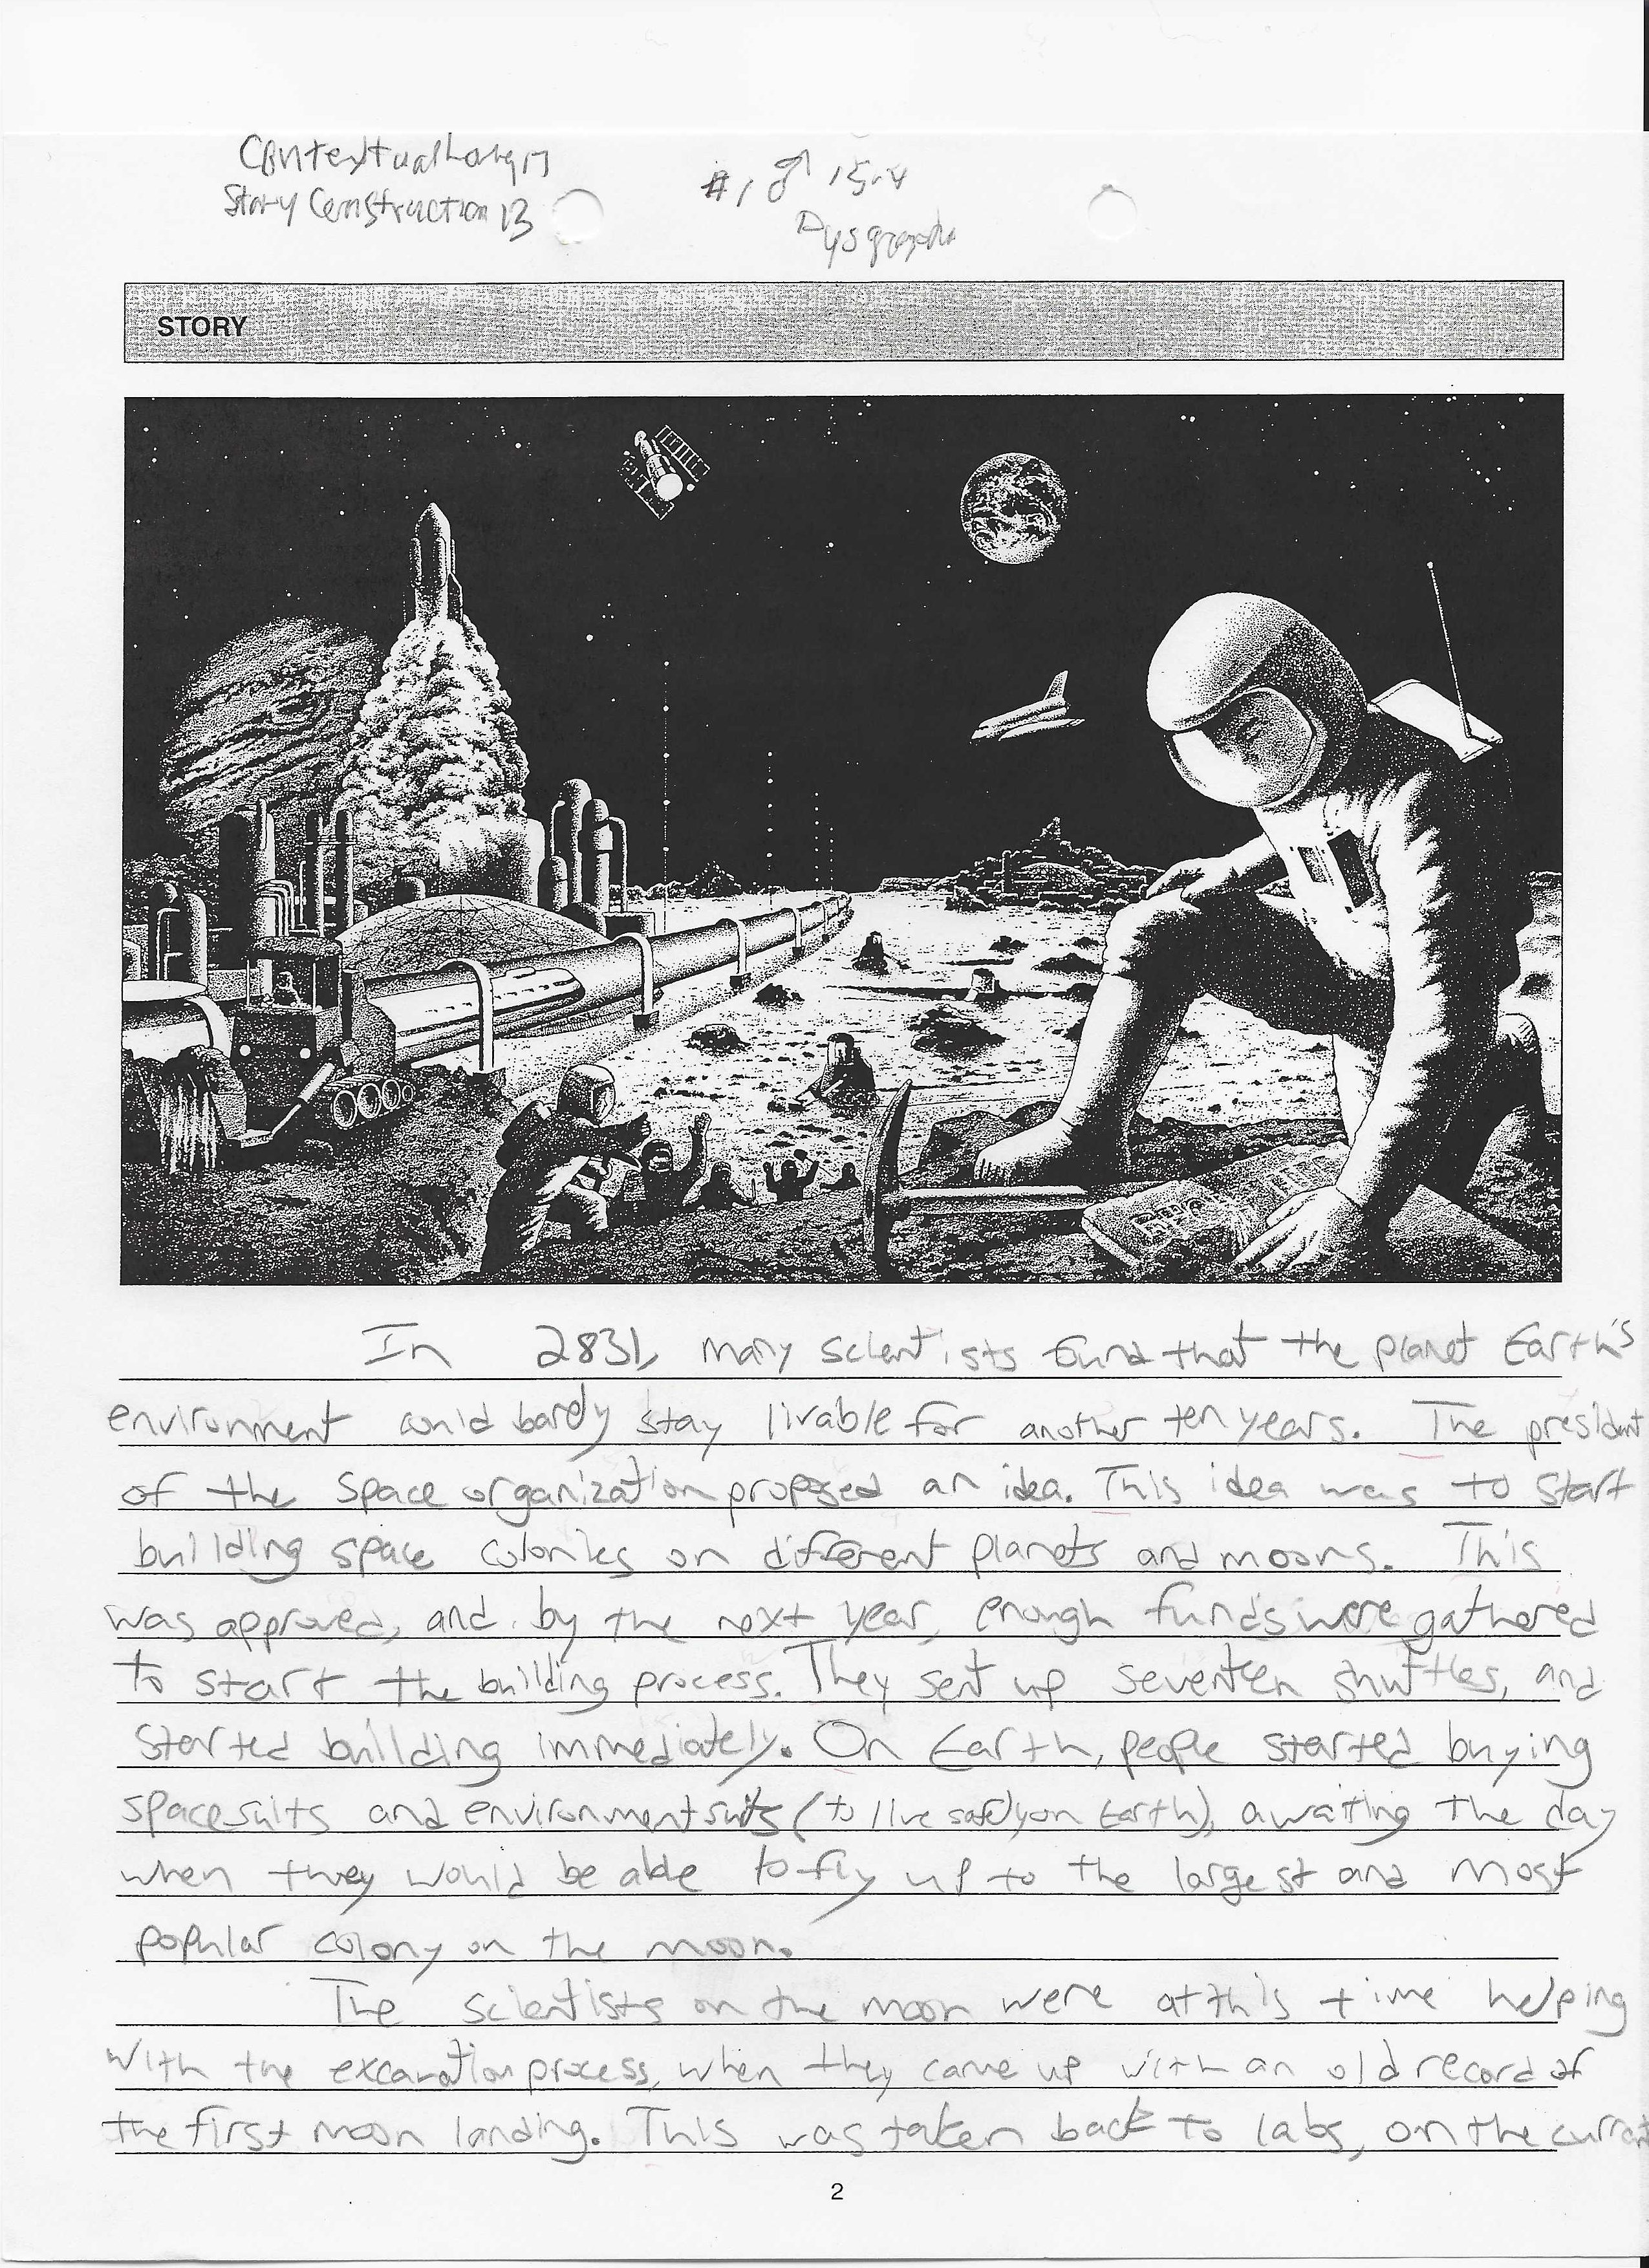 Contextual Lang 17
Story Construction 13
#1 ♂ 15-4
Dysgraphia
STORY
In 2831, many scientists found that the planet Earth's
environment could barely stay livable for another ten years. The president
of the space organization proposed an idea. This idea was to start
building space colonies on different planets and moons. This
was approved, and by the next year, enough funds were gathered
to start the building process. They sent up seventeen shuttles, and
started building immediately. On Earth, people started buying
spacesuits and environment suits (to live safely on Earth), awaiting the day
when they would be able to fly up to the largest and most
popular colony on the moon.
The scientists on the moon were at this time helping
with the excavation process, when they came up with an old record of
the first moon landing. This was taken back to labs, on the current
2